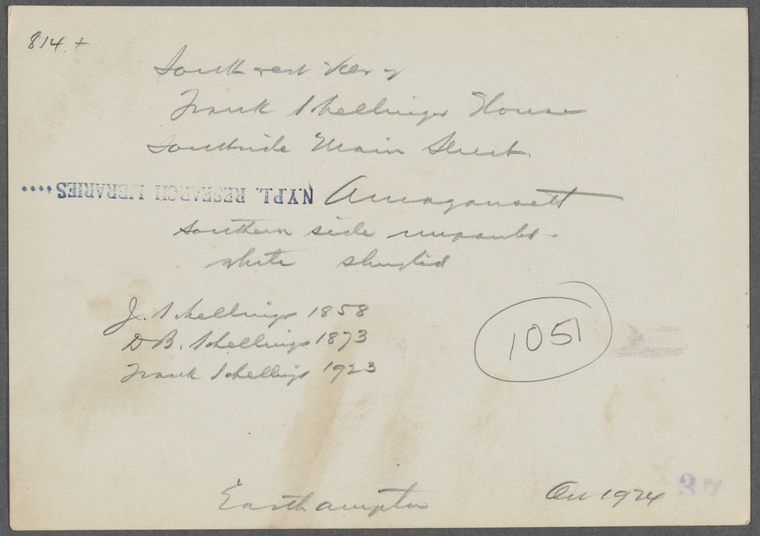 814.+
South west View
Frank Schellinger House
Southside Main Street.
N.Y.P.L. RESEARCH LIBRARIES
Amagansett
Southern side unpainted -
white shingled
J. Schellinger 1858
D B. Schellinger 1873
Frank Schellinger 1923
1051
Easthampton
Oct 1924